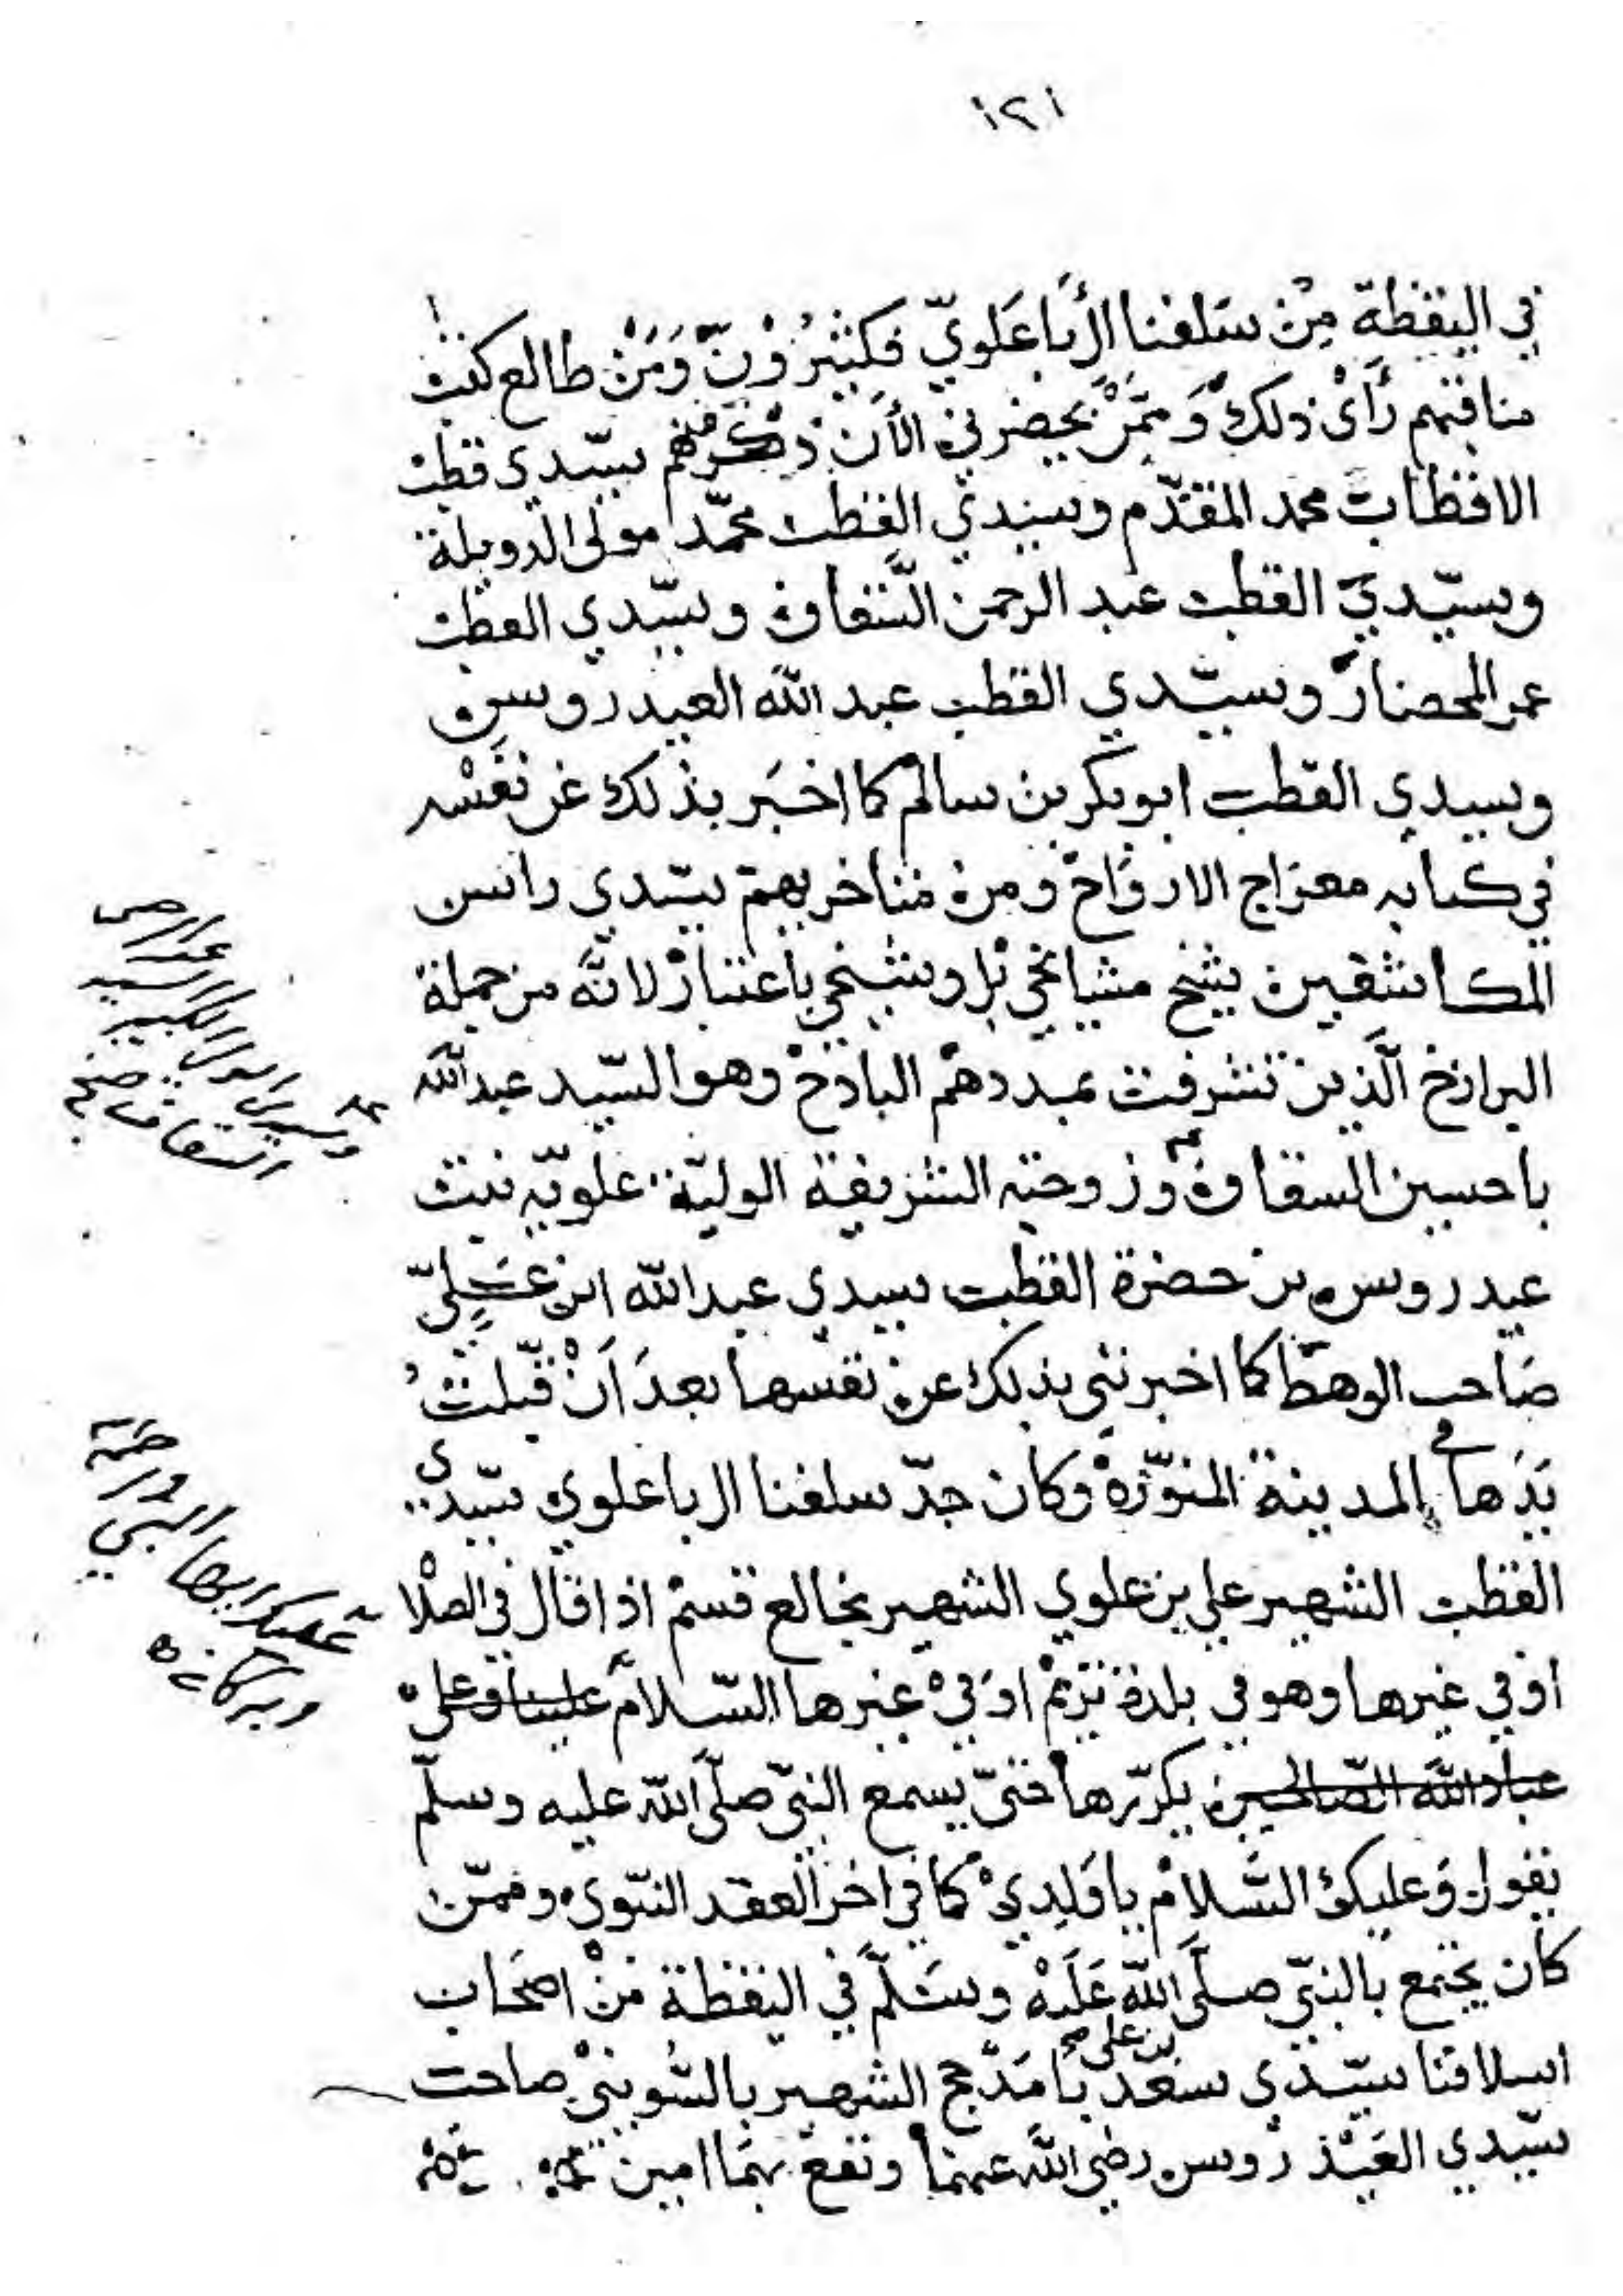 ١٢١
في اليقظة مِنْ سَلفنا آل أبا عَلويّ فكثيرُوْنَ وَمَنْ طالع كتب
مناقبهم رَأى ذلك وَممَّنْ يحضرني الأَن ذكرهم منهم سيّدي قطب
الاقطاب محمد المقدّم وسيدي القطب محمّد مولى الدويلة
وسيّدي القطب عبد الرحمن السّقاف وسيّدي القطب
عمر المحضار وسيّدي القطب عبد الله العيدروس
وسيدي القطب ابوبكر بن سالم كما اخبَر بذلك عن نفسْه
في كتابه معراج الارواح ومن متاخريهم سيّدي رائس
المكاشفين شيخ مشايخي بل وشيخي باعتبار لانَّه من جملة
البرازخ الّذين تشرفت بمددهم الباذخ وهو السّيد عبد الله
باحسين السقاف وزوجته الشريفة الوليّة علويّه بنت
عيدروس بن حضرة القطب سيدي عبد الله ابن عَليّ
صَاحب الوهط كما اخبرتني بذلك عن نفسها بعدَ اَنْ قبّلتُ
يَدَها في المدينة المنوّرة وكان جدّ سلفنا ال باعلوي سيّدي
القطب الشهير علي بن علوي الشهير بخالع قسم اذا قال في الصلا
او في غيرها وهو في بلدة تريم او في غيرها السّلام علينا وعلى
عباد الله الصّالحين يكرّرها حتىّ يسمع النبيّ صلّى الله عليه وسلّم
يقول وَعليكَ السَّلام يا وَلِدِيْ كما في اخر العقد النبّوي وممّن
كان يجتمع بالنبيّ صلَّى الله عَلَيْه وسَلّم في اليقظة منْ اصحَاب
اسلافنا سيّدي سعد بن علي بامَدْحج الشهير بالسّوينيْ صاحب
سيّدي العَيْدروس رضي الله عنهما ونفع بهمَا امين
وسيدي الوالي الكبير السيد
السقاف صح
عليك ايها النبي ورحمة
وبركاته